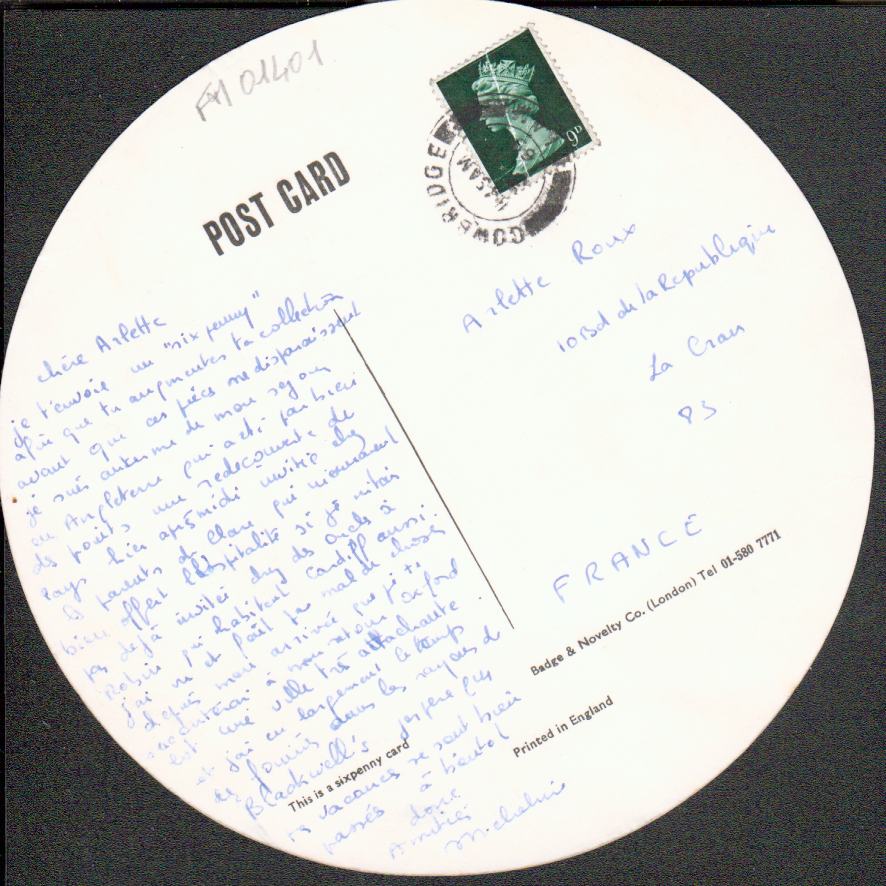 FM 01401
POST CARD
COWBRIDGE
9D
chère Arlette
je t'envoie un "six penny"
afin que tu augmentes ta collection
avant que ces pièces ne disparaissent
je suis au terme de mon séjour
en Angleterre qui a été par bien
des points une redecouverte de
pays hier après midi invitée chez
les parents de Clare qui m'avaient
bien offert l'hospitalité si je n'étais
pas déjà invitée chez des oncles à
Robin qui habitent Cardiff aussi
j'ai vu et fait pas mal de choses
depuis mon arrivée que je te
raconterai à mon retour Oxford
est une ville très attachante
et j'ai eu largement le temps
de fouiner dans les rayons de
Blackwell's j'espère que
tes vacances se sont bien
passées à bientôt
donc
Amitiés
Micheline
Arlette Roux
10 Bd de la Republique
La Crau
83
FRANCE
Badge & Novelty Co. (London) Tel 01-580 7771
Printed in England
This is a sixpenny card